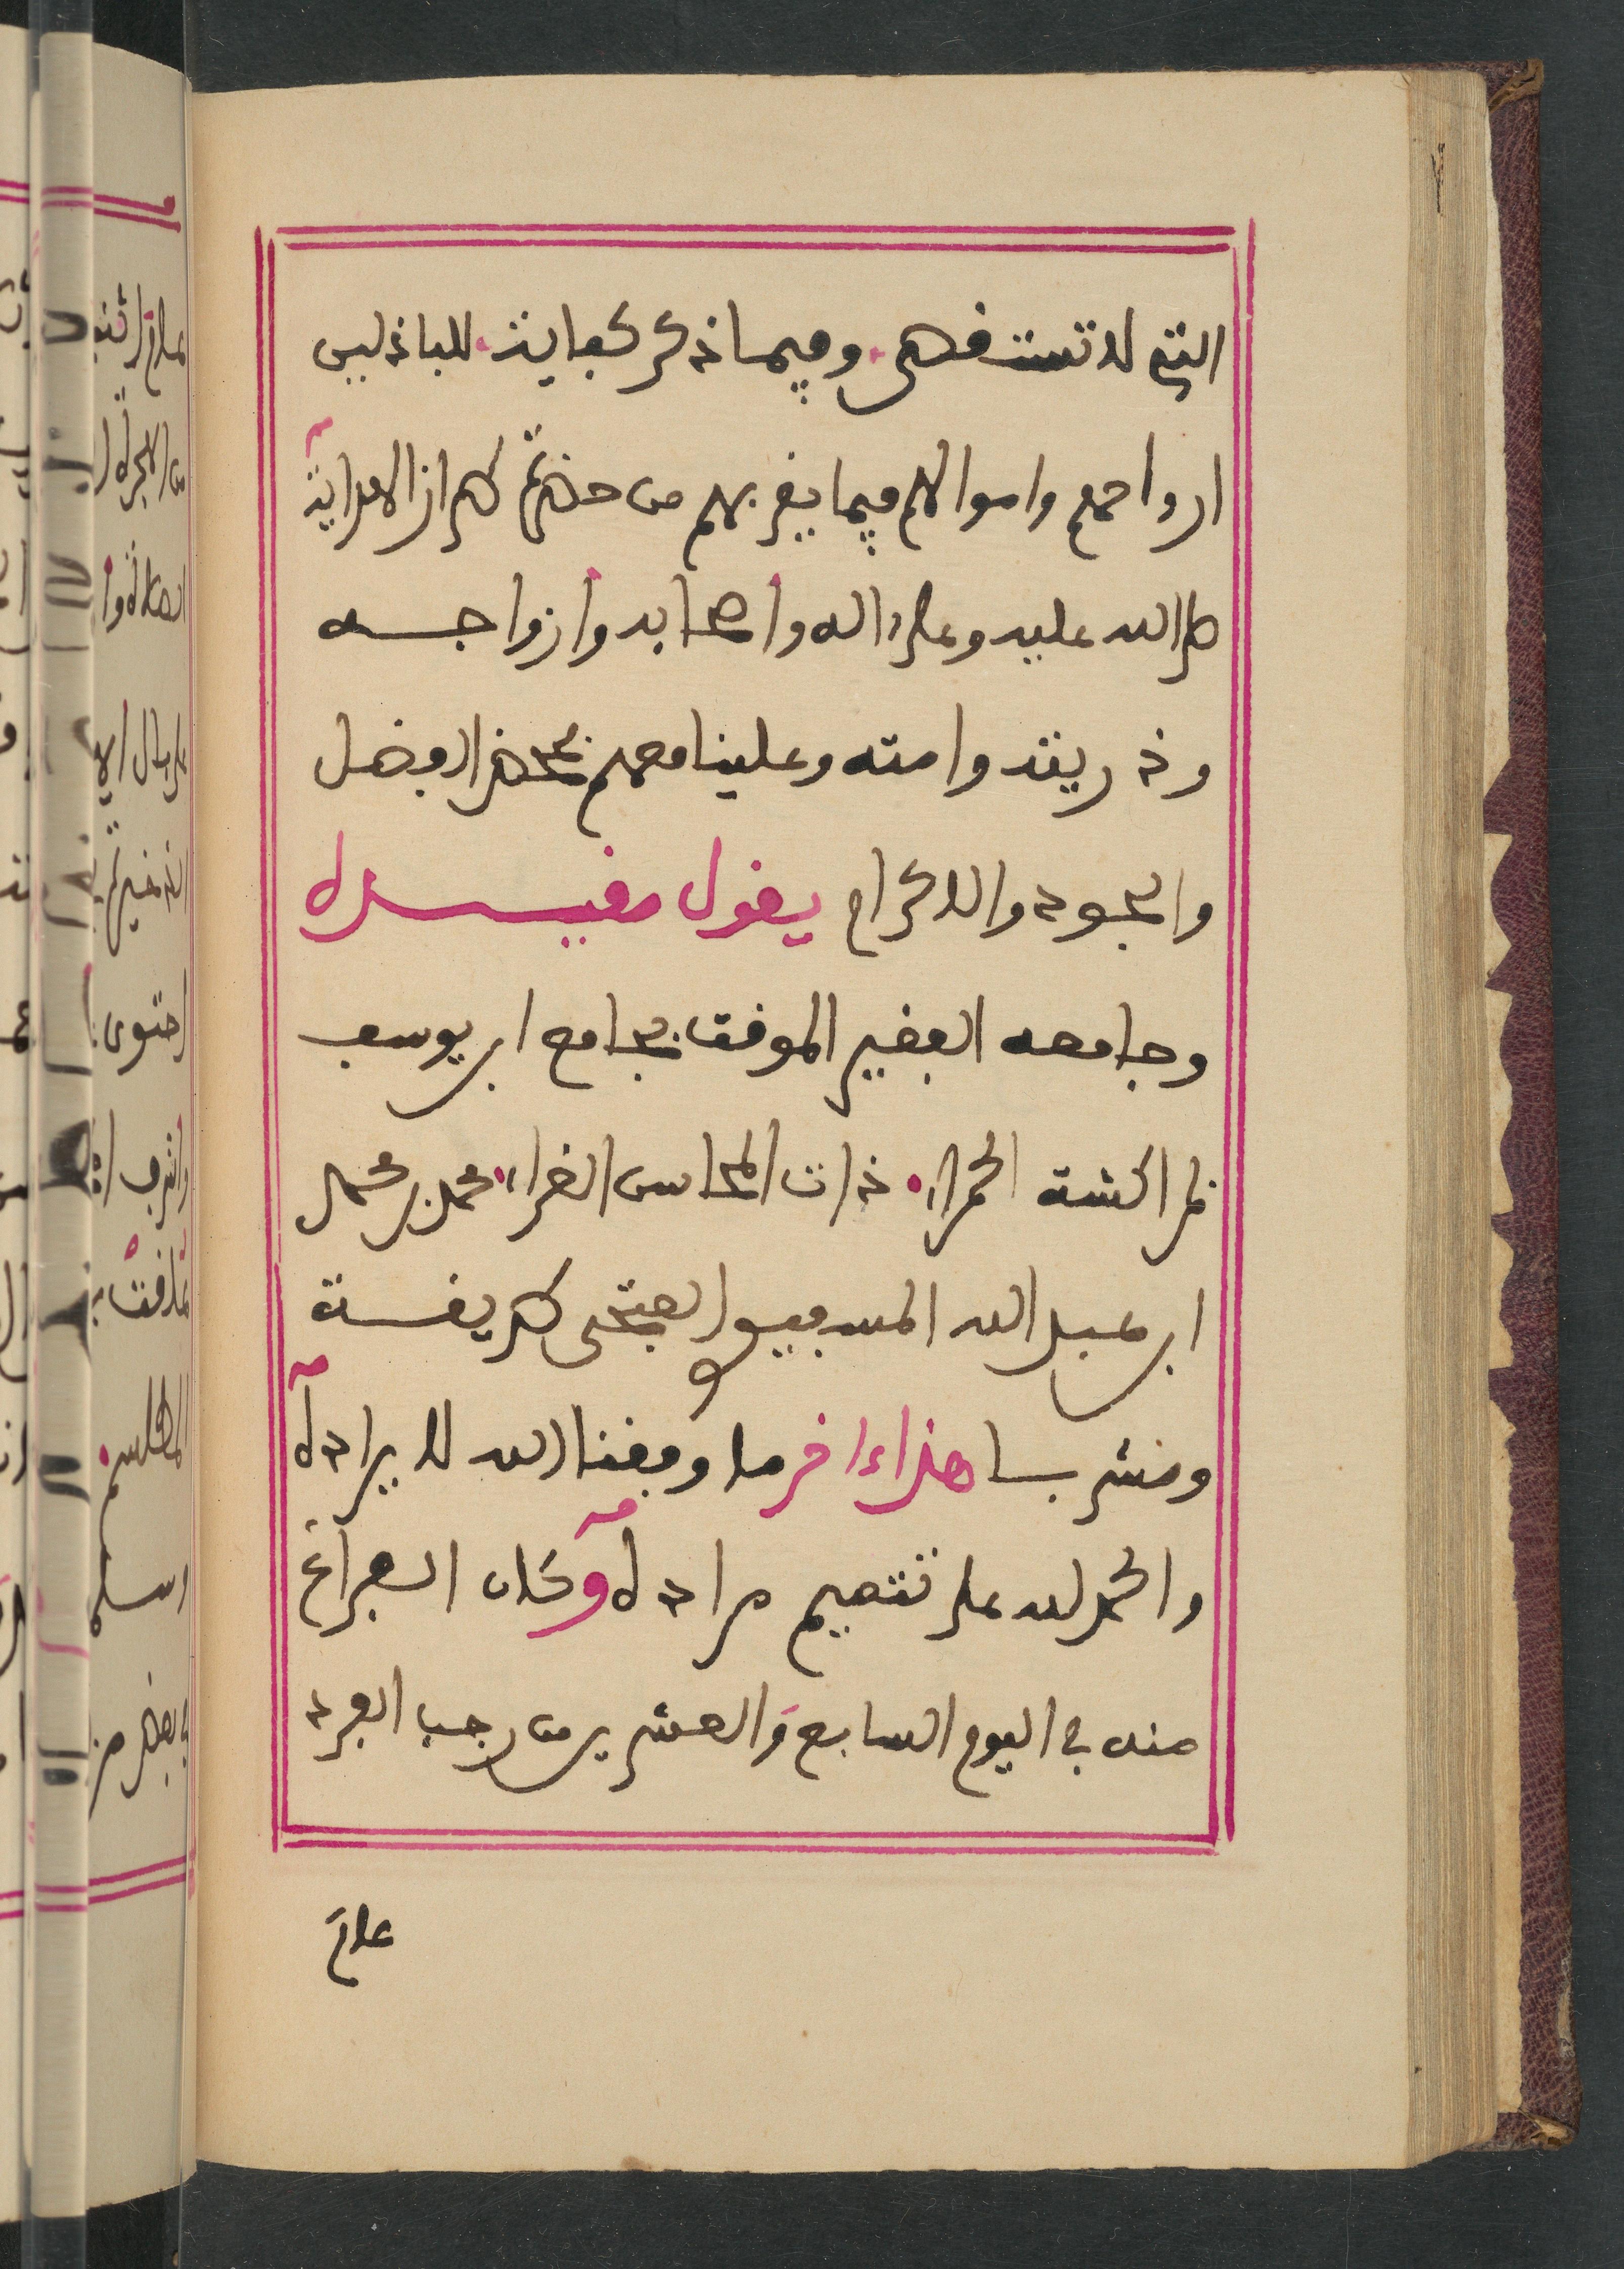 التي لا تستقصى وفيما ذكر كفاية للباذلين
ارواحهم واموالهم فيما يقربهم من حضرة طراز الهداية
صلى الله عليه وعلى ءاله واصحابه وازواجه
وذريته وامته وعلينا معهم بمحض الفضل
والجود والاكرام يقول مقيده
وجامعه الفقير الموقت بجامع ابن يوسف
بمراكشة الحمراء ذات المحاسن الغراء محمد بن محمد
ابن عبد الله المسفيوي الفتحى طريقة
ومشربا هذا ءاخر ما وفقنا الله لايراده
والحمد لله على تتميم مراده وكان الفراغ
منه في اليوم السابع والعشرين من رجب الفرد
علم